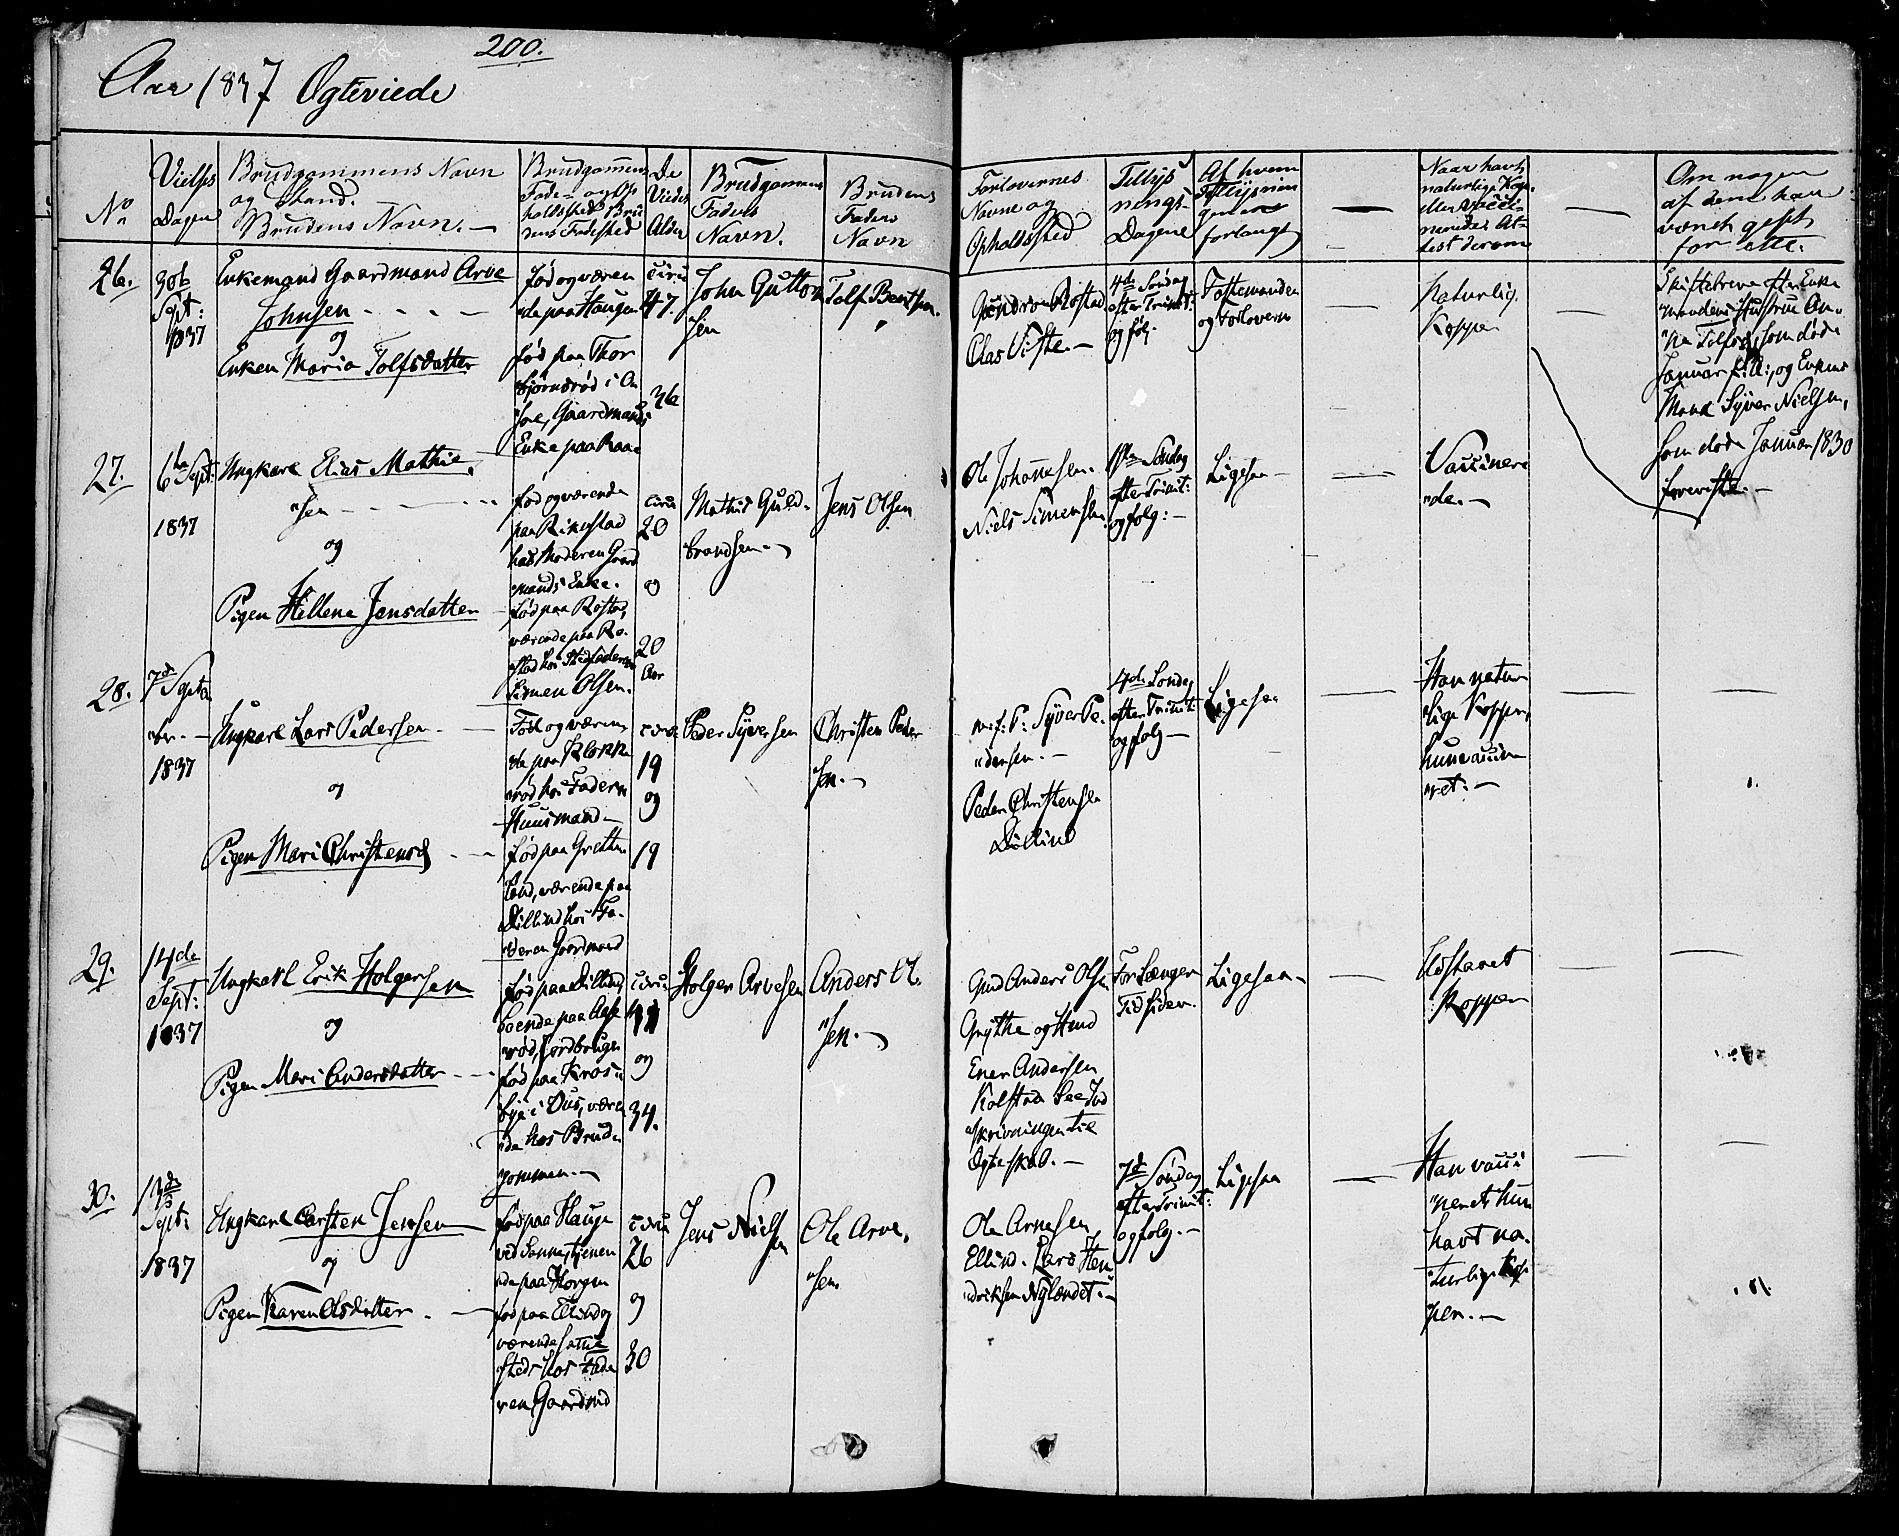 200.
Aar 1837 Ægteviede
No
Vielses Dagen
Brudgommens Navn
og Stand.
Brudens Navn. —
Brudgommens
Føde- og Op
holdssted Bru
dens Fødested
De
Viedes
Alder
Brudgommens
Faders
Navn.
Brudens
Faders
Navn
Forlovernes
Navne og
Opholdssted
Tillys
nings-
Dagene
Af hvem
forlangt
Naar havt
naturlige Kop.
eller vacci
neredes At-
test derom
Om nogen
af dem har
været gift
før etc.
26.
Sept:
1837
Enkemand Gaardmand Arve
Johnsen - - - -
og
Enken Maria Tolfsdatter
født og væren
de paa Haugen
født paa Thor
bjørnsrød i On
søe, Gaardmands
Enke paa Raae
circa
47.
36
John Gutton
sen
Tolf Berthsen.
Røstad
Olas Viste. —
4de Søndag
efter Trinit:
og følg.
Fæstemanden
og Forloverne
Naturlig.
Kopper
Skiftebreve efter Enke
mandens Hustrue An-
na Tolfsd, som døde
Januar f: A:, og Enkens
Mand Syver Nielsen,
som døde Januar 1830
foreviste. —
27.
6te Sept:
1837
Ungkarl Elias Mathie.
"sen — - — - — ...
og
Pigen Hellena Jensdatter
født og værende
paa Rikestad
hos Moderen Gaard
mands Enke.
født paa Røstad,
værende paa Rø.
stad hos Stedfaderen
Simen Olsen.
circa
20
og
20
Aar
Mathis Guld-
brandsen. —
Jens Olsen
Ole Johannesen.
Niels Simensen
Søndag
efter Trinit:
og følg: —
Ligesaa —
Vaccinere
"de. —
28.
7de Septe
"br. —
1837
Ungkarl Lars Pedersen. —
og
Pigen Mari Christensd
Født og væren
de paa Klopp
rød hos Faderen
Huusmand —
født paa Grette
land, værende paa
Dillind hos Fa-
deren Gaardmand
circa
19
og
19
Peder Syversen
Christen Peder
"sen. —
Syver Pe.
"dersen. —
Peder Christensen
Dillind
4de Søndag
efter Trinit:
og følg —
Ligesaa
Han natur
"lige Kopper,
hun vaccine
"ret: —
29.
14de
Sept:
1837
Ungkarl Erik Holgersen
og
Pigen Mari Andersdatter - -
født paa Dillind,
boende paa Aase
"rød, Jordbruger
født paa Kros"
bye i Dus, væren
"de hos Brud
gommen. —
circa
og
34.
Holger Arvesen
Anders Ol.
"sen. —
Gmd Anders Olsen
Grythe og Hmd
Ener Andersen
Kolstad See Ind
"skrivningen til
Ægteskab. —
For længer
Tid siden.
Ligesaa —
Kopper
30.
13de
Sept:
1837
Ungkarl Carsten Jensen
og
Pigen Karen Olsdatter. —
født paa Hauge
ved Sonne, tjenen
"de paa Horgen
født paa Ellind og
værende samme
sted hos Fade
ren Gaardmd
circa
26
og
30
Jens Nielsen
Ole Arve.
"sen
Ole Arnesen
Ellind. Lars Hen
"driksen Nylændet: —
7de Søndag
efter Trinit:
og følg. —
Ligesaa
Han vacci
"neret hun
havt na.
"turlige Kop
"per. —